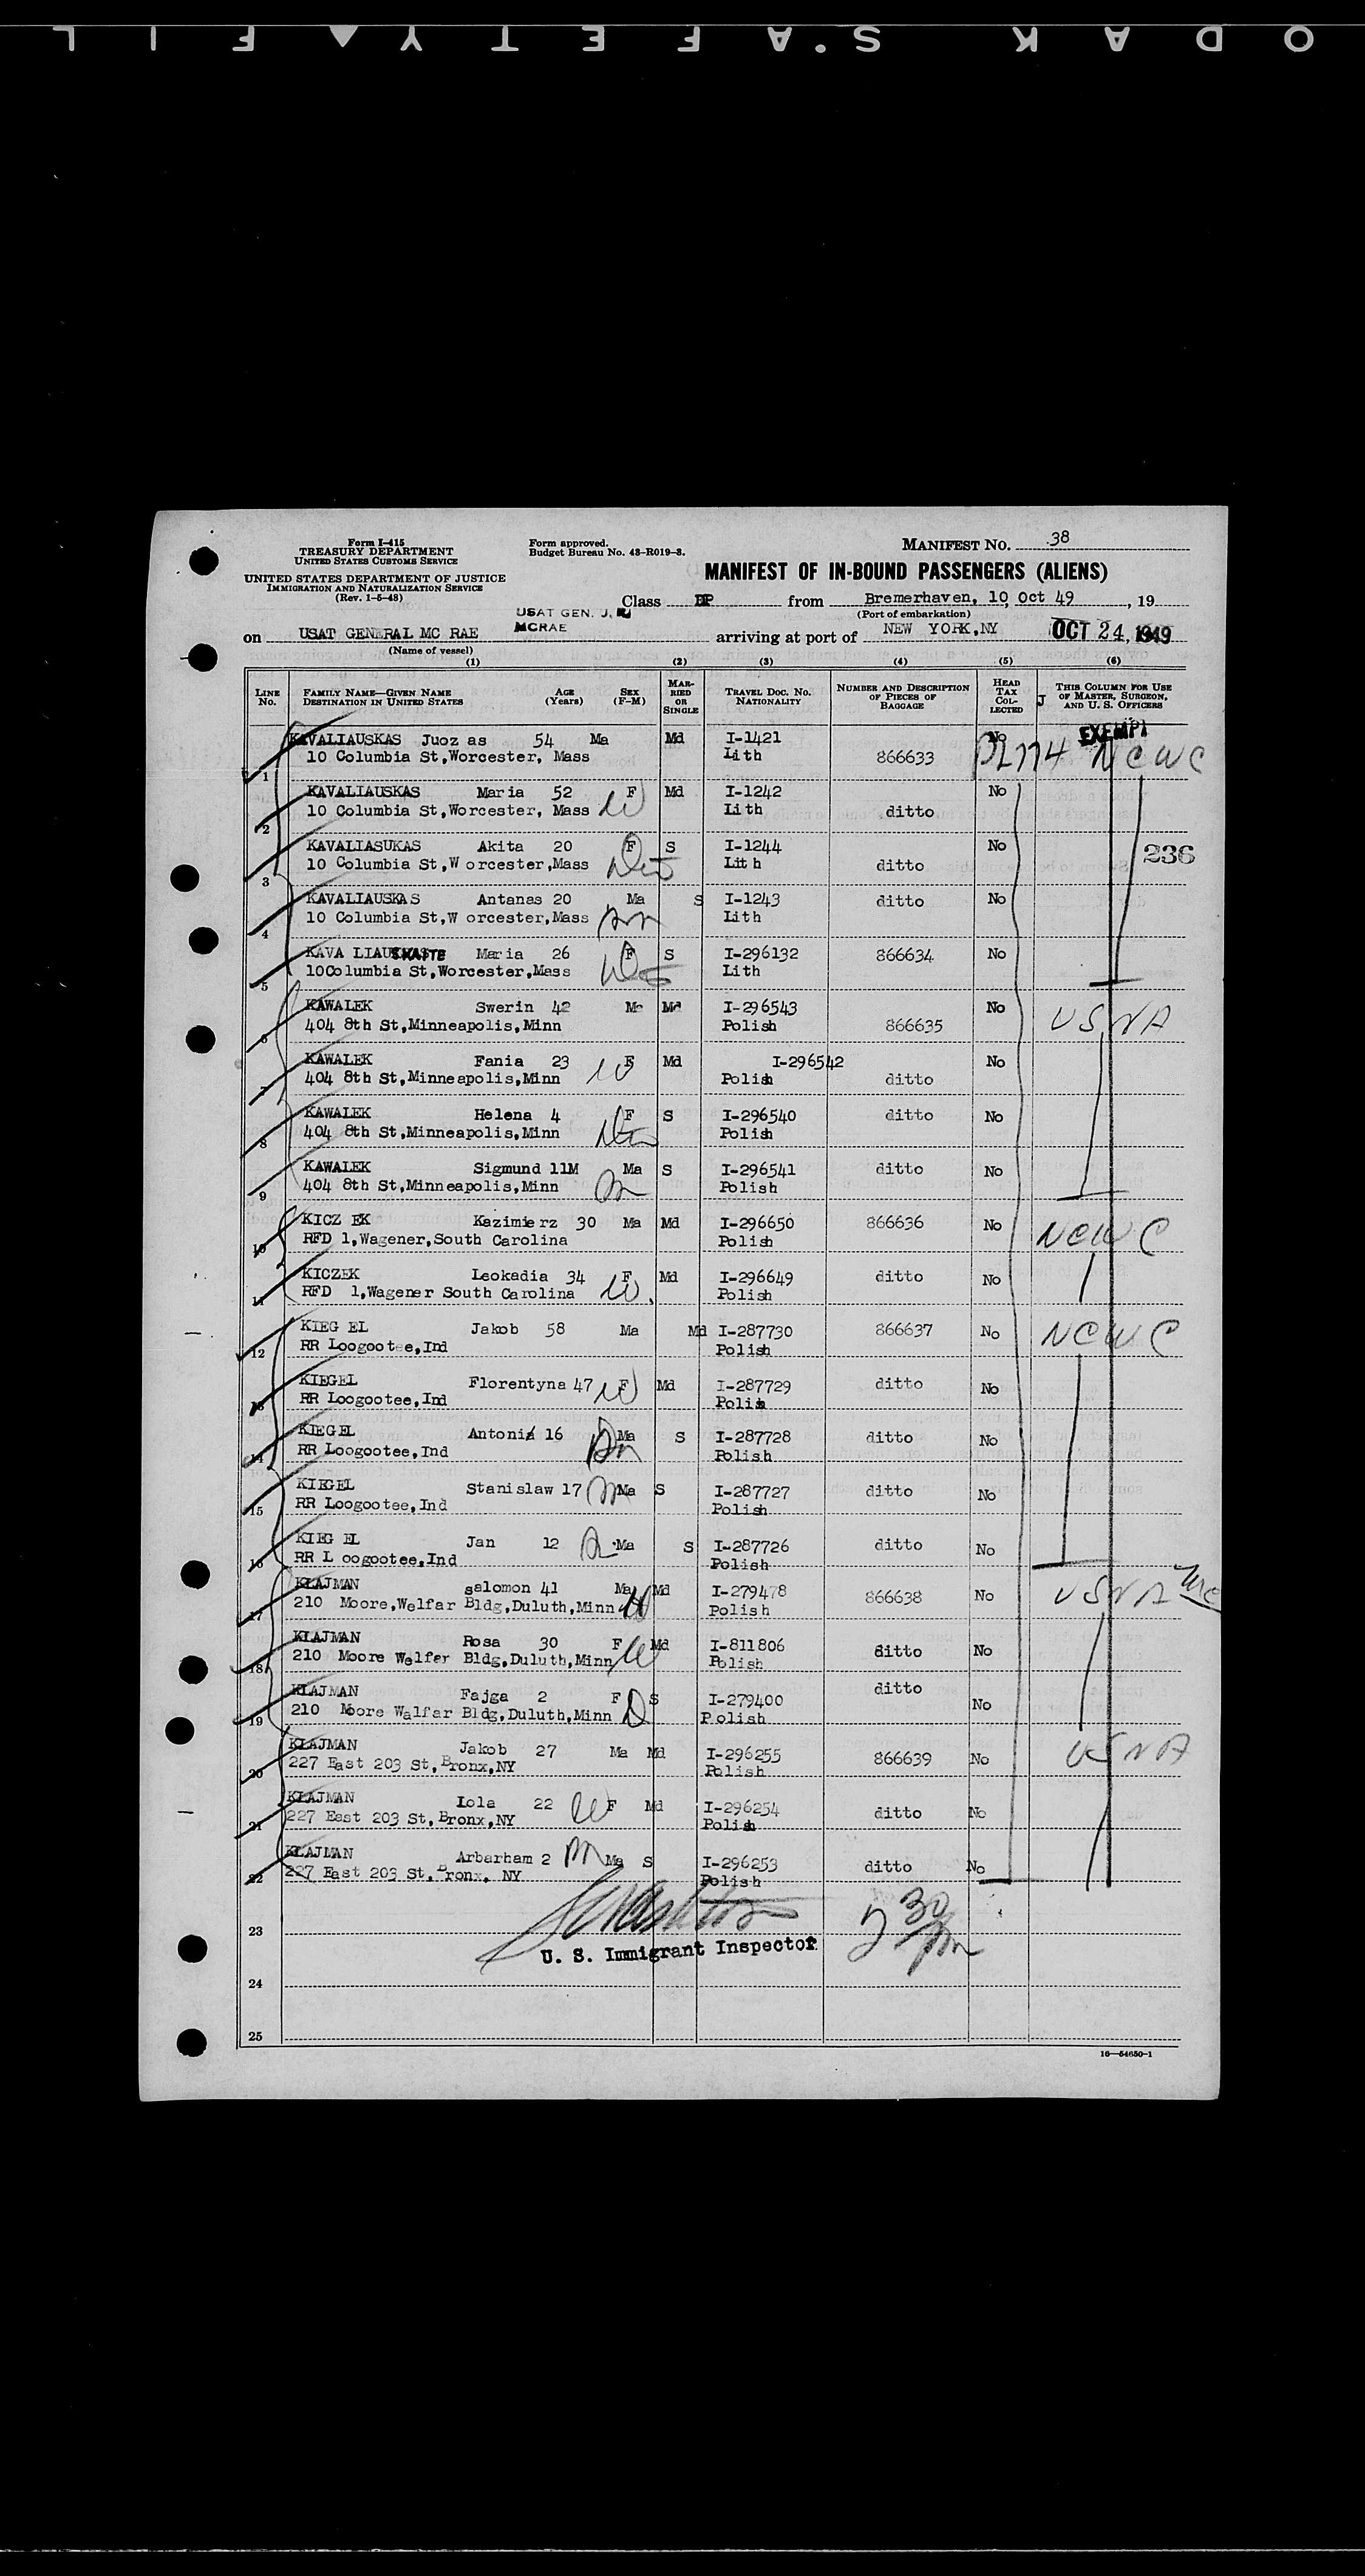 KODAK SAFETY FILM
Form I-415
TREASURY DEPARTMENT
UNITED STATES CUSTOMS SERVICE
UNITED STATES DEPARTMENT OF JUSTICE
IMMIGRATION AND NATURALIZATION SERVICE
(Rev. 1-5-48)
Form approved.
Budget Bureau No. 43-R019-3.
MANIFEST NO. 38
MANIFEST OF IN-BOUND PASSENGERS (ALIENS)
Class DP from Bremerhaven, 10, Oct 49, 19
(Port of embarkation)
USAT GEN. J.
MCRAE
on USAT GENERAL MC RAE arriving at port of NEW YORK,NY OCT 24, 1949
(Name of vessel)
(1) (2) (3) (4) (5) (6)
LINE No. FAMILY NAME—GIVEN NAME DESTINATION IN UNITED STATES AGE (Years) SEX (F-M) MARRIED OR SINGLE TRAVEL DOC. NO. NATIONALITY NUMBER AND DESCRIPTION OF PIECES OF BAGGAGE HEAD TAX COLLECTED THIS COLUMN FOR USE OF MASTER, SURGEON, AND U. S. OFFICERS
EXEMPT
KAVALIAUSKAS Juoz as 54 Ma Md I-1421 No
1 10 Columbia St,Worcester, Mass Lith 866633 PL774 NCWC
KAVALIAUSKAS Maria 52 F Md I-1242 No
2 10 Columbia St,Worcester, Mass W Lith ditto
KAVALIASUKAS Akita 20 F S I-1244 No 236
3 10 Columbia St,W orcester,Mass Lith ditto
KAVALIAUSKAS Antanas 20 Ma S I-1243 ditto No
4 10 Columbia St,W orcester,Mass Lith
KAVA LIAUSKAITE Maria 26 F S I-296132 866634 No
5 10Columbia St,Worcester,Mass Lith
KAWALEK Swerin 42 Ma Md I-296543 No USNA
6 404 8th St,Minneapolis,Minn Polish 866635
KAWALEK Fania 23 F Md I-296542 No
7 404 8th St,Minneapolis,Minn W Polish ditto
KAWALEK Helena 4 F S I-296540 ditto No
8 404 8th St,Minneapolis,Minn Polish
KAWALEK Sigmund 11M Ma S I-296541 ditto No
9 404 8th St,Minneapolis,Minn Polish
KICZ EK Kazimierz 30 Ma Md I-296650 866636 No NCWC
10 RFD 1,Wagener,South Carolina Polish
KICZEK Leokadia 34 F Md I-296649 ditto No
11 RFD 1,Wagener South Carolina W. Polish
KIEG EL Jakob 58 Ma Md I-287730 866637 No NCWC
12 RR Loogootee,Ind Polish
KIEGEL Florentyna 47 W F Md I-287729 ditto No
13 RR Loogootee,Ind Polish
KIEGEL Antoni 16 Ma S I-287728 ditto No
14 RR Loogootee,Ind Polish
KIEGEL Stanislaw 17 Ma S I-287727 ditto No
15 RR Loogootee,Ind Polish
KIEG EL Jan 12 Ma S I-287726 ditto No
16 RR L oogootee,Ind Polish
KLAJMAN Salomon 41 Ma Md I-279478 866638 No USNA
17 210 Moore,Welfar Bldg,Duluth,Minn Polish
KLAJMAN Rosa 30 F Md I-811806 ditto No
18 210 Moore Welfar Bldg,Duluth,Minn W Polish
KLAJMAN Fajga 2 F S I-279400 ditto No
19 210 Moore Walfar Bldg,Duluth,Minn D Polish
KLAJMAN Jakob 27 Ma Md I-296255 866639 No USNA
20 227 East 203 St,Bronx,NY Polish
KLAJMAN Lola 22 W F Md I-296254 ditto No
21 227 East 203 St,Bronx,NY Polish
KLAJMAN Arbarham 2 Ma S I-296253 ditto No
22 227 East 203 St,Bronx, NY Polish
23
U. S. Immigrant Inspector
24
25
16—54650-1